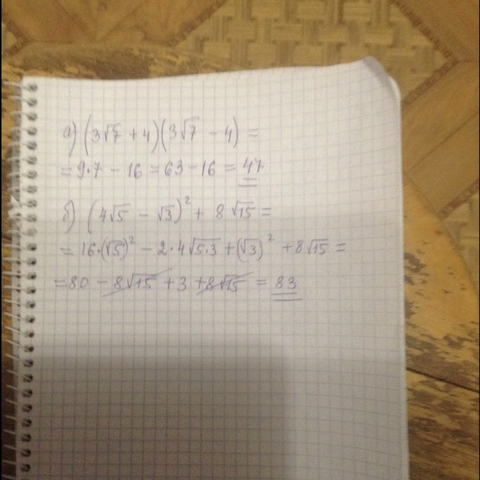 а) (3√7 + 4)(3√7 − 4) =
= 9·7 − 16 = 63 − 16 = 47
б) (4√5 − √3)² + 8√15 =
= 16·(√5)² − 2·4√5·3 + (√3)² + 8√15 =
= 80 − 8√15 + 3 + 8√15 = 83